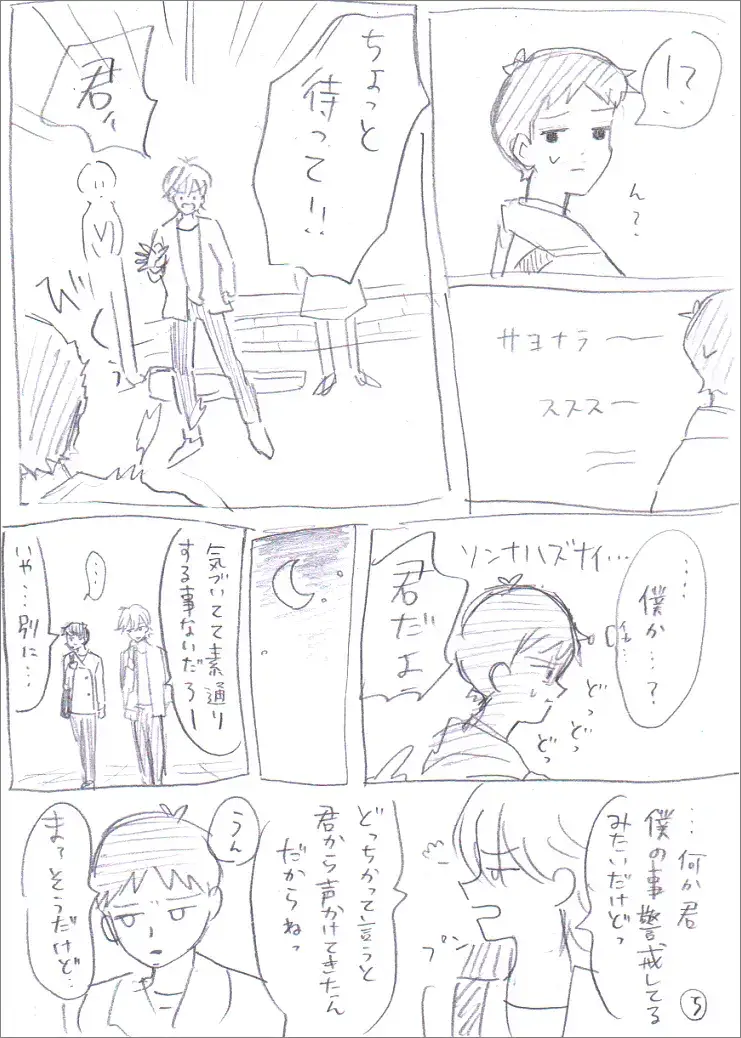 !?
ん?
サヨナラ
ススス
ちょっと
待って!!
君!
びくっ
…
僕か…?
ソンナハズナイ…
どっ
どっ
どっ
君だよ
気づいてて素通り
する事ないだろー
…
いや…別に…
…何か君
僕の事警戒してる
みたいだけどっ
プン
どっちかって言うと
君から声かけてきたん
だからねっ
うん
まぁそうだけど…
5